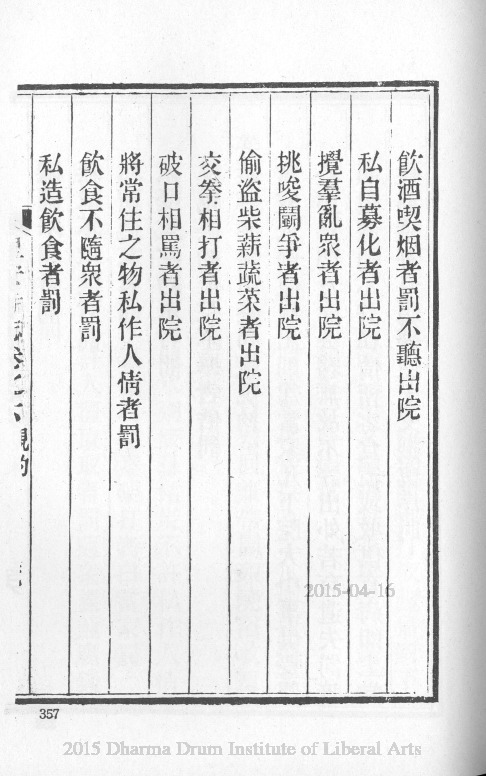 飲酒喫烟者罰不聽出院
私自募化者出院
攪羣亂眾者出院
挑唆鬪爭者出院
偷盜柴薪蔬菜者出院
交拳相打者出院
破口相罵者出院
將常住之物私作人情者罰
飲食不隨眾者罰
私造飲食者罰
卷之六
規約
357
2015-04-16
2015 Dharma Drum Institute of Liberal Arts